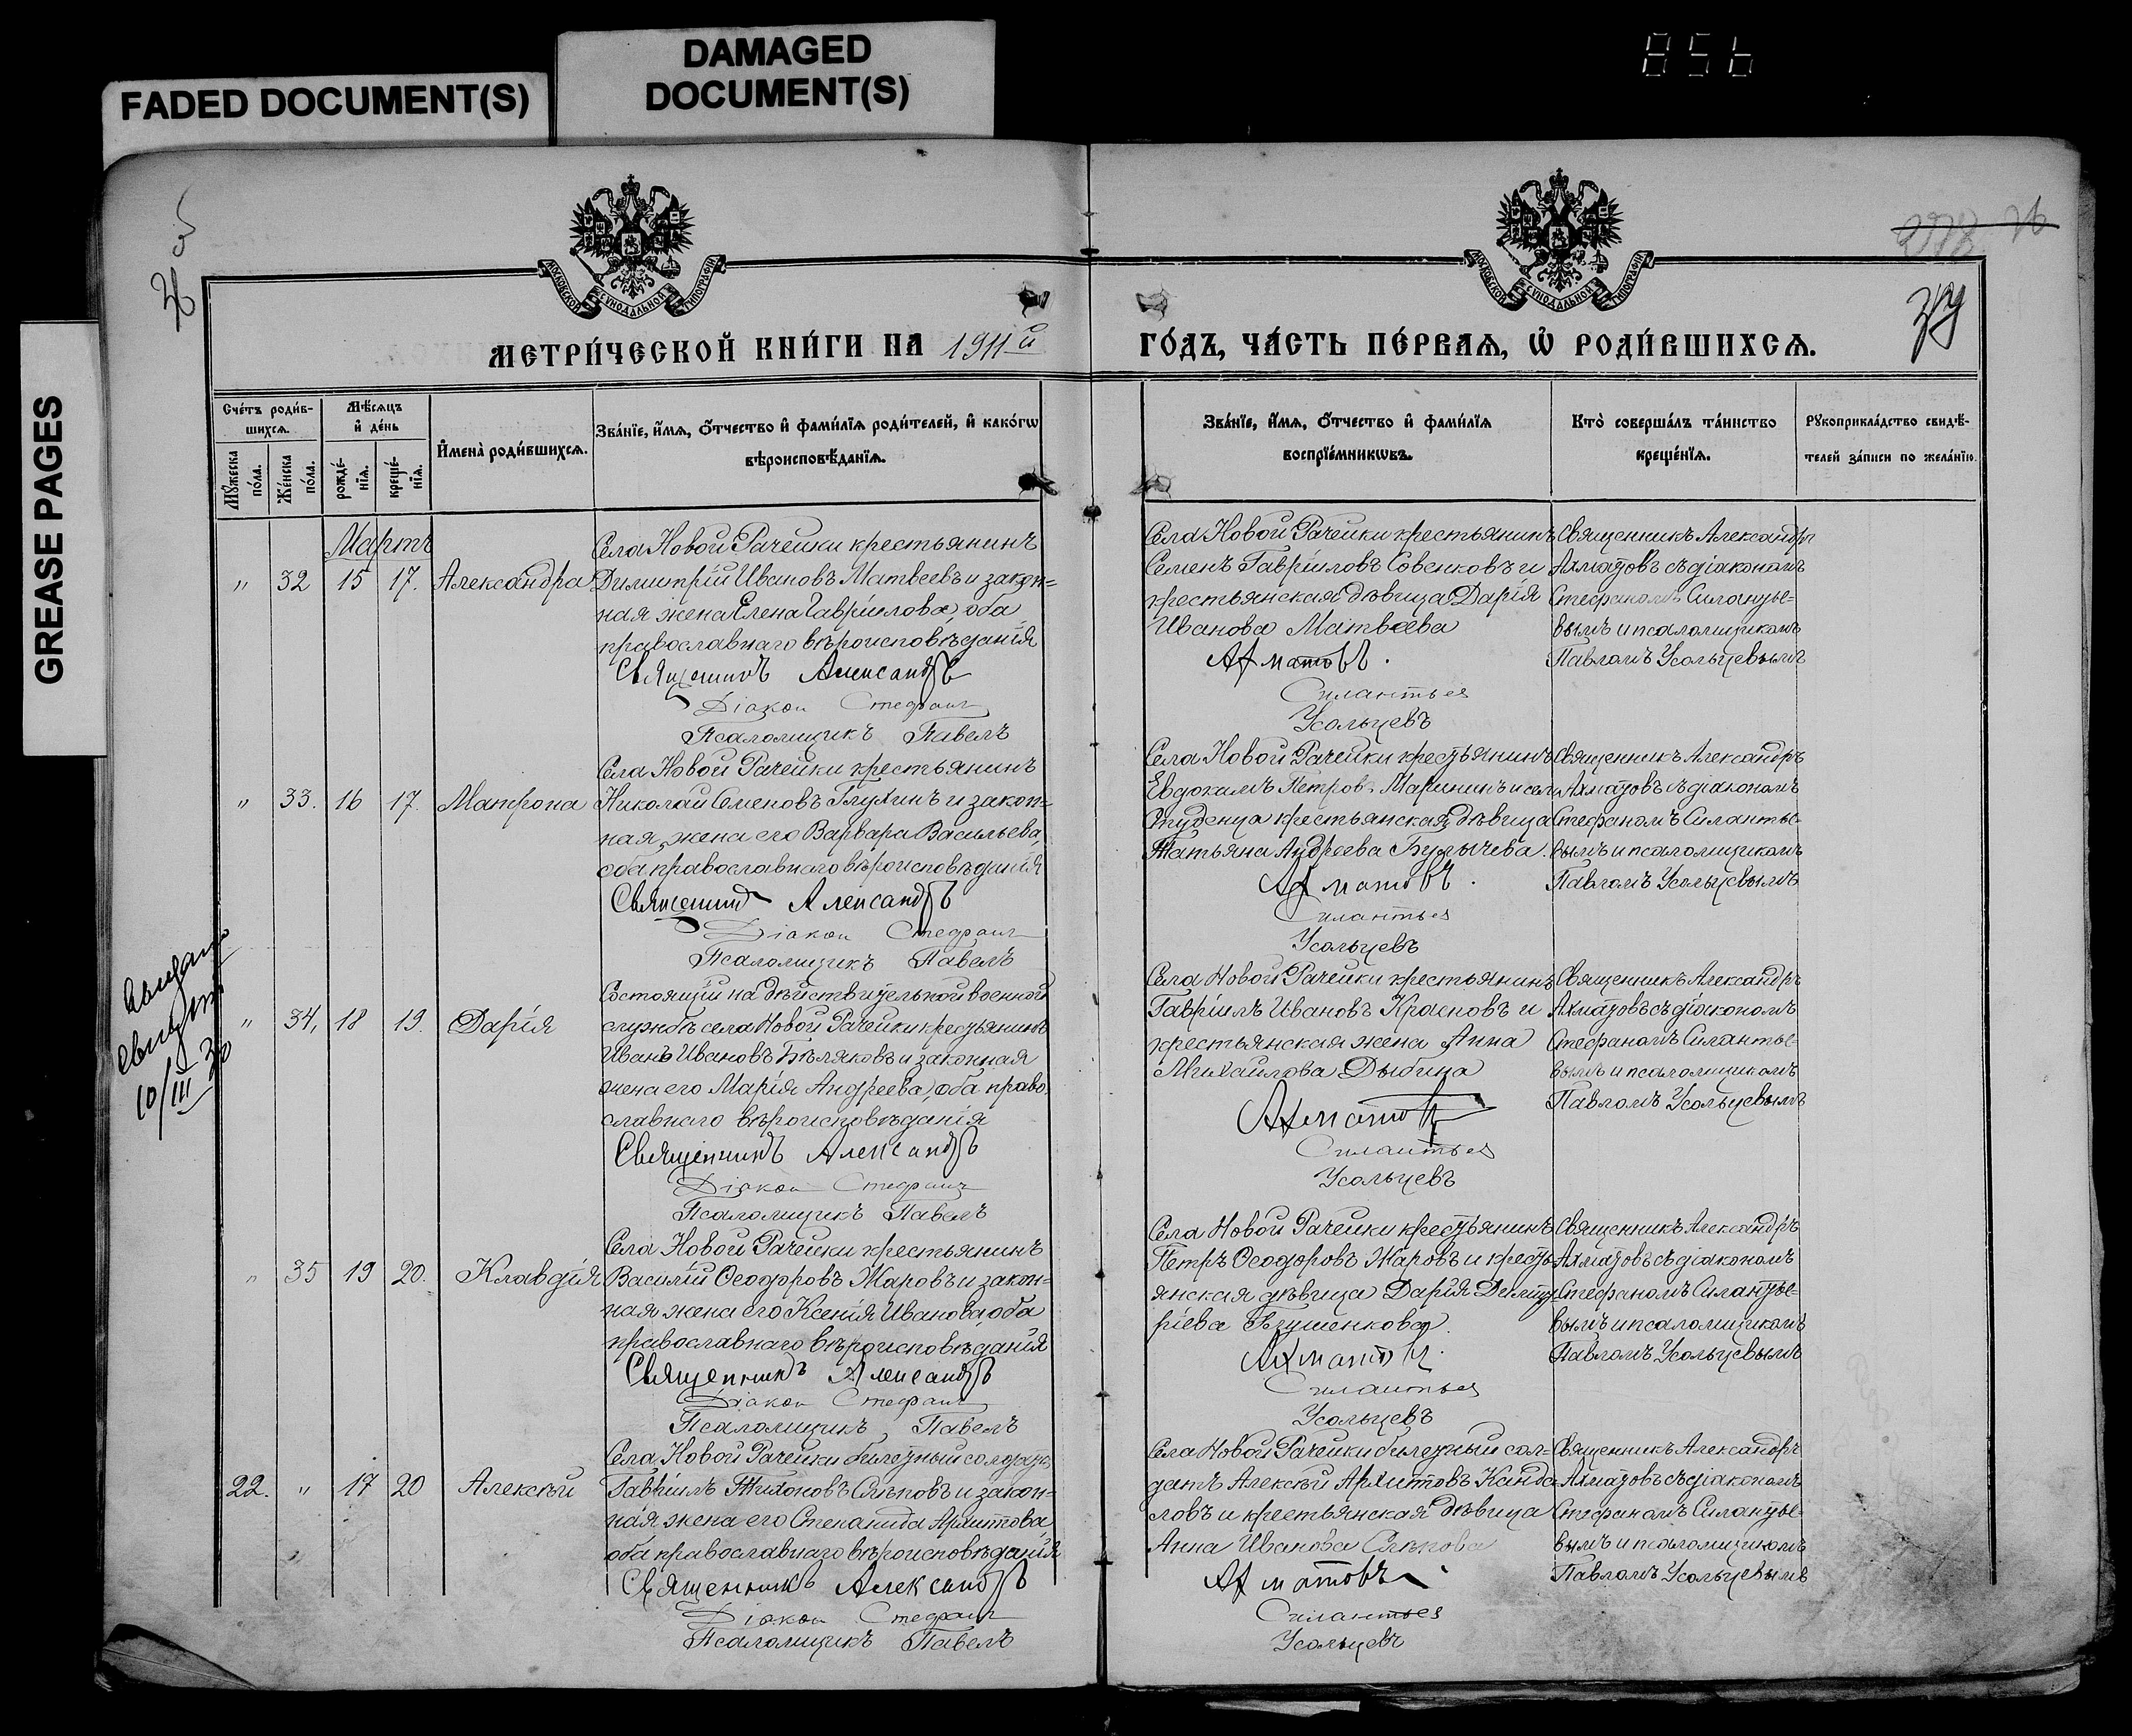 FADED DOCUMENT(S)
DAMAGED
DOCUMENT(S)
856
GREASE PAGES
МОСКОВСКОЙ СѴНОДАЛЬНОЙ ТИПОГРАФІИ
МОСКОВСКОЙ СѴНОДАЛЬНОЙ ТИПОГРАФІИ
МЕТРИ́ЧЕСКОЙ КНИ́ГИ НА 1911й
ГО́ДЪ, ЧА́СТЬ ПЕ́РВАѦ, Ѡ҆ РОДИ́ВШИХСѦ.
Сче́тъ роди́в-
шихсѧ.
Мꙋ́жеска по́ла.
Же́нска по́ла.
Мѣ́сѧцъ
и҆ де́нь
рожде́-
нїѧ.
креще́-
нїѧ.
И҆мена̀ роди́вшихсѧ.
Зва́нїе, и҆́мѧ, ѻ҆́тчество и҆ фами́лїѧ роди́телей, и҆ како́гѡ
вѣроисповѣ́данїѧ.
Зва́нїе, и҆́мѧ, ѻ҆́тчество и҆ фами́лїѧ
воспрїе́мникѡвъ.
Кто̀ соверша́лъ та́инство
креще́нїѧ.
Рꙋкоприкла́дство свидѣ́-
телей за́писи по жела́нїю.
Мартъ
" 32 15 17. Александра
Села Новой Рачейки крестьянинъ
Димитрій Ивановъ Матвеевъ и закон=
ная жена Елена Гавріилова, оба
православнаго вѣроисповѣданія
Священникъ Александръ
Діакон Стефанъ
Псаломщикъ Павелъ
Села Новой Рачейки крестьянинъ
Семенъ Гавріиловъ Совенковъ и
крестьянская дѣвица Дарія
Иванова Матвеева
Ахматовъ.
Силантьев
Усольцевъ
Священникъ Александръ
Ахматовъ съ діакономъ
Стефаномъ Силантье-
вымъ и псаломщикомъ
Павломъ Усольцевымъ
" 33. 16 17. Матрона
Села Новой Рачейки крестьянинъ
Николай Семеновъ Глухинъ и закон=
ная жена его Варвара Васильева,
оба православнаго вѣроисповѣданія
Священник Александръ
Діакон Стефанъ
Псаломщикъ Павелъ
Села Новой Рачейки крестьянинъ
Евдокимъ Петровъ Маринин и села
Студенца крестьянская дѣвица
Татьяна Андреева Булычева.
Ахматовъ.
Силантьев
Усольцевъ
Священникъ Александръ
Ахматовъ съ діакономъ
Стефаномъ Силантье-
вымъ и псаломщикомъ
Павломъ Усольцевымъ
10/III 30
" 34, 18 19. Дарія
Состоящій на дѣйствительной военной
службѣ села Новой Рачейки крестьянинъ
Иванъ Ивановъ Бѣляковъ и законная
жена его Марія Андреева, оба право-
славнаго вѣроисповѣданія
Священникъ Александръ
Діакон Стефанъ
Псаломщикъ Павелъ
Села Новой Рачейки крестьянинъ
Гавріилъ Ивановъ Красновъ и
крестьянская жена Анна
Михайлова Дыбина
Ахматовъ
Силантьев
Усольцевъ
Священникъ Александръ
Ахматовъ съ діакономъ
Стефаномъ Силантье-
вымъ и псаломщикомъ
Павломъ Усольцевымъ
" 35 19 20. Клавдія
Села Новой Рачейки крестьянинъ
Василій Ѳеодоровъ Жаровъ и закон=
ная жена его Ксенія Иванова, оба
православнаго вѣроисповѣданія
Священникъ Александръ
Діакон Стефанъ
Псаломщикъ Павелъ
Села Новой Рачейки крестьянинъ
Петръ Ѳеодоровъ Жаровъ и кресть-
янская дѣвица Дарія Димит-
ріева Глушенкова.
Ахматовъ.
Силантьев
Усольцевъ
Священникъ Александръ
Ахматовъ съ діакономъ
Стефаномъ Силантье-
вымъ и псаломщикомъ
Павломъ Усольцевымъ
22. " 17 20 Алексѣй
Села Новой Рачейки билетный солдатъ
Гавріилъ Тихоновъ Слѣповъ и закон-
ная жена его Степанида Архипова,
оба православнаго вѣроисповѣданія
Священникъ Александръ
Діакон Стефанъ
Псаломщикъ Павелъ
Села Новой Рачейки билетный сол=
датъ Алексѣй Архиповъ Канда-
ловъ и крестьянская дѣвица
Анна Иванова Слѣпова
Ахматовъ
Силантьев
Усольцевъ
Священникъ Александръ
Ахматовъ съ діакономъ
Стефаномъ Силантье-
вымъ и псаломщикомъ
Павломъ Усольцевымъ